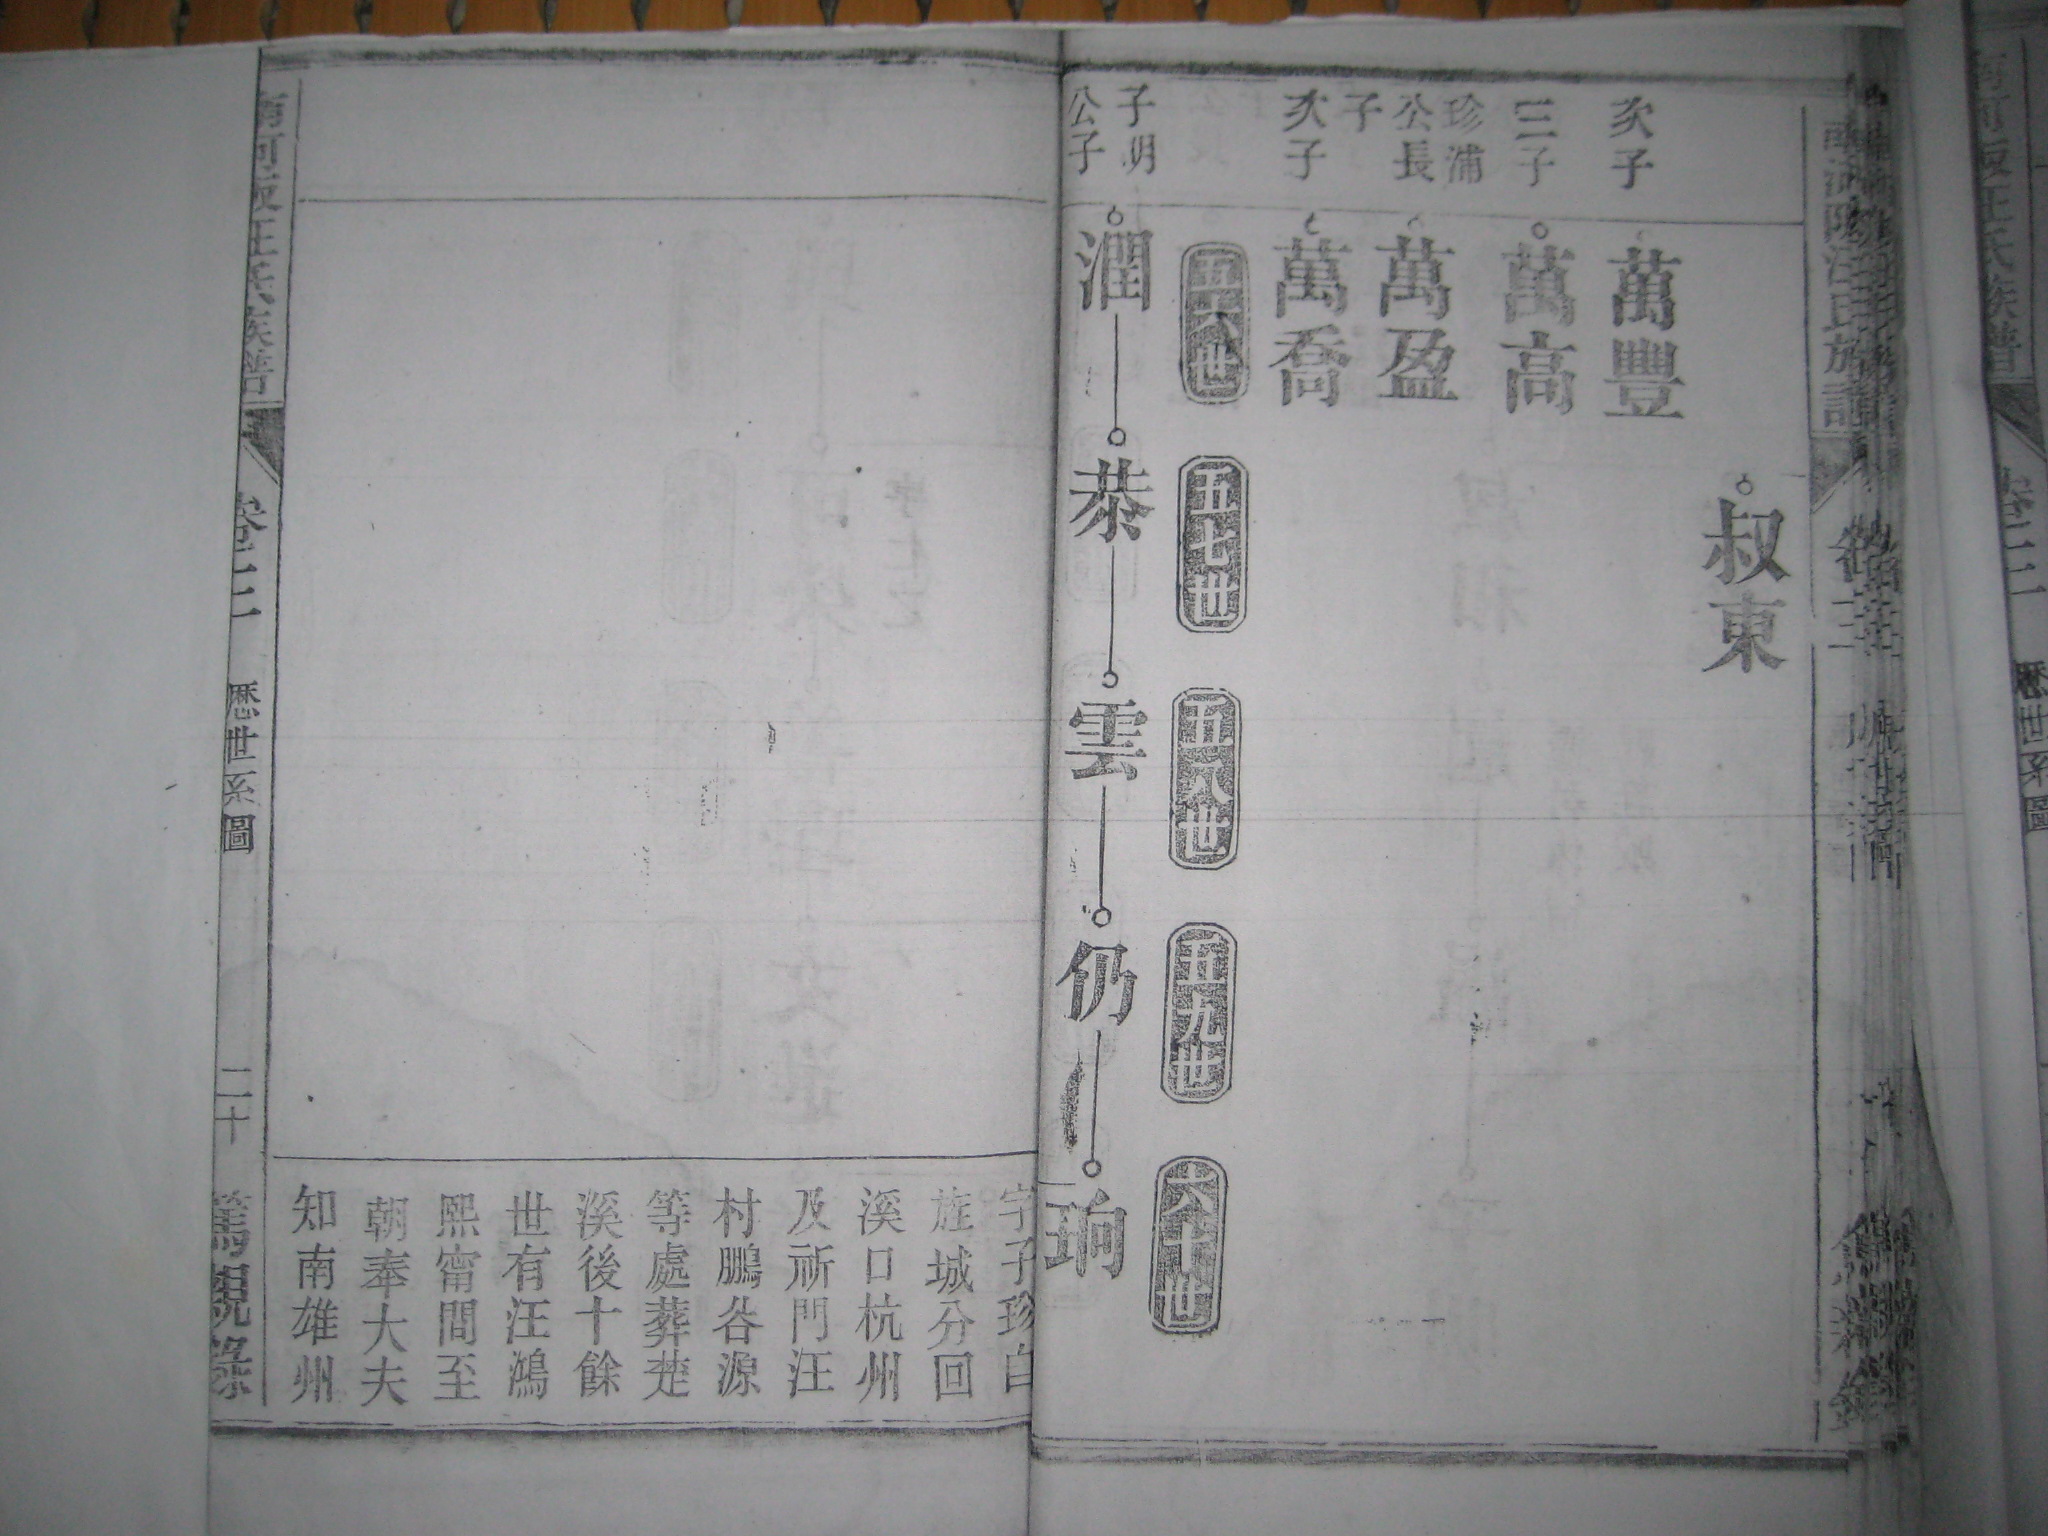 叔東
次子
萬豐
三子
萬高
珍浦
公長
子
萬盈
次子
萬喬
五十六世
五十七世
五十八世
五十九世
六十世
子明
公子
潤
恭
雲
仍
珦
字子珍白
旌城分回
溪口杭州
及祈門汪
村鵬谷源
等處葬楚
溪後十餘
世有汪鴻
熙甯間至
朝奉大夫
知南雄州
汪氏族譜
卷三
歷世系圖
二十